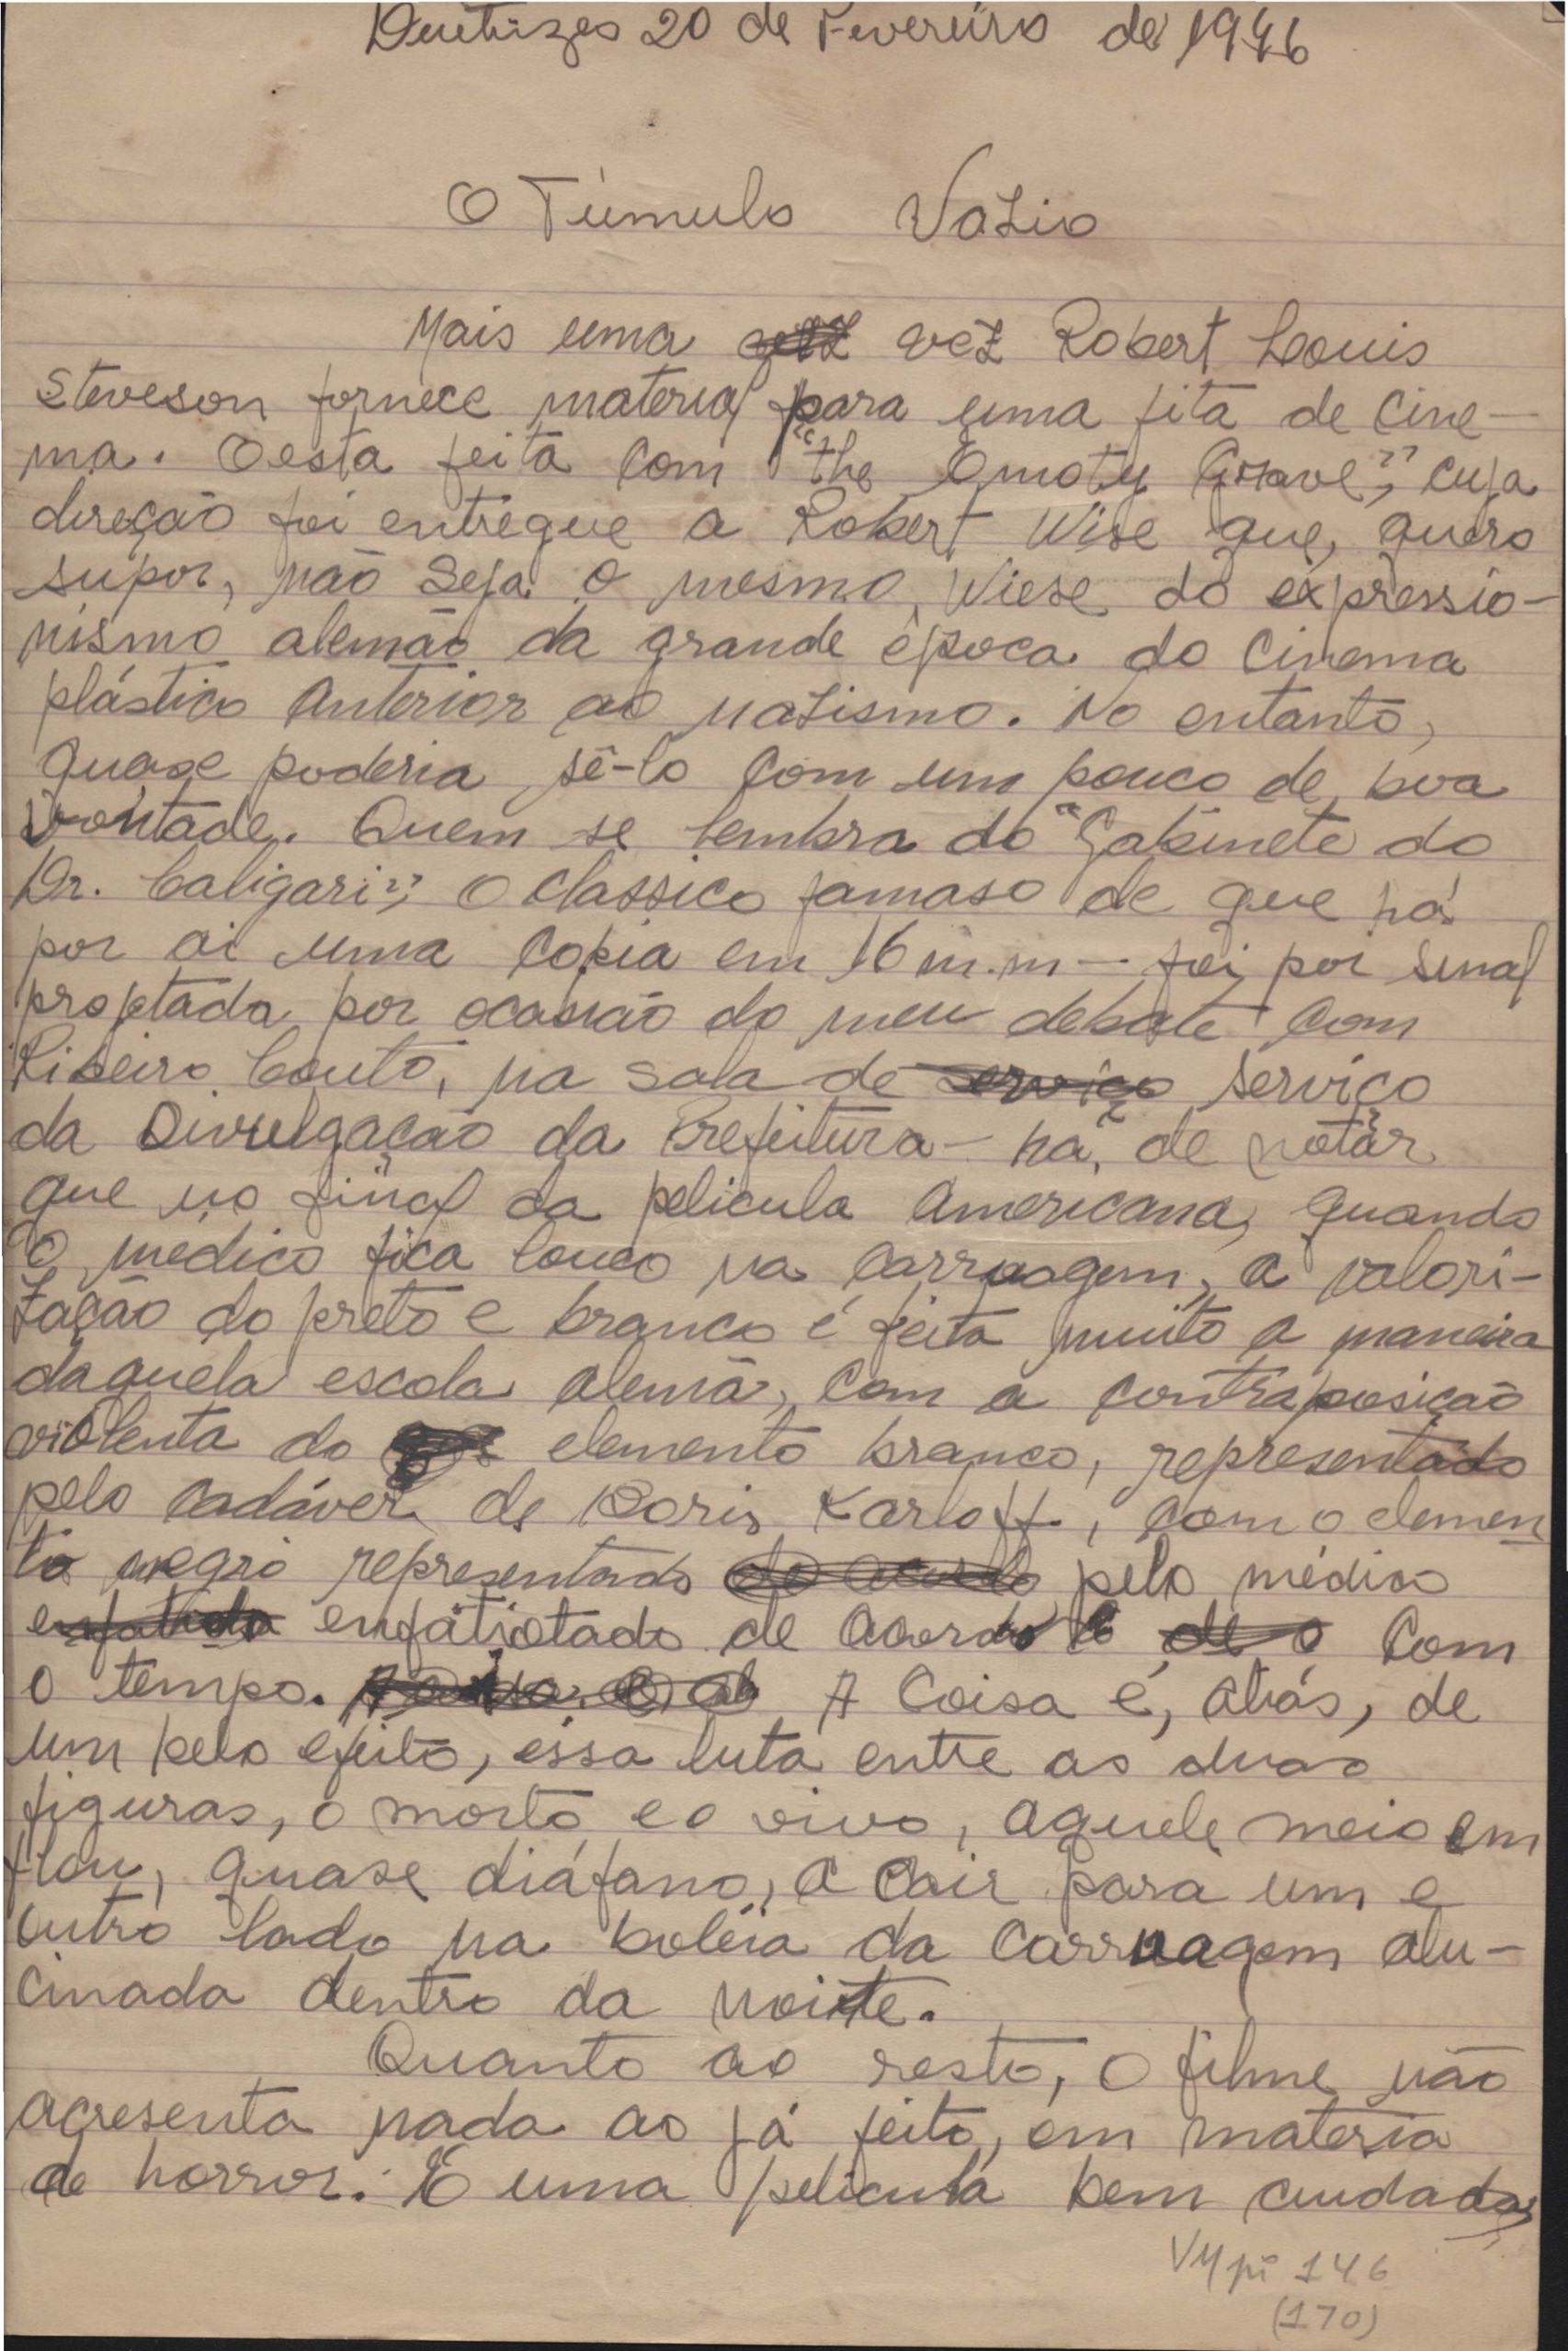 Diretrizes 20 de Fevereiro de 1946
O Túmulo Vazio
Mais uma vez Robert Louis
Steveson fornece material para uma fita de cine-
ma. Desta feita com "the Emoty Grave", cuja
direção foi entregue a Robert Wise que, quero
supor, não seja o mesmo Wiese do expressio-
nismo alemão da grande época do cinema
plástico anterior ao nazismo. No entanto,
quase poderia sê-lo com um pouco de boa
vontade. Quem se lembra do "Gabinete do
Dr. Caligari", o classico famaso de que há
por ai uma copia em 16 m.m - foi por sinal
projetada por ocasião do meu debate com
Ribeiro Couto, na sala de serviço
da Divulgação da Prefeitura - há de notar
que no final da pelicula americana, quando
o médico fica louco na carruagem, a valori-
zação do preto e branco é feita muito a maneira
daquela escola alemã, com a contraposição
violenta do elemento branco, representado
pelo cadáver de Boris Karloff, com o elemen
to negro representado pelo médico
enfatiotado de acordo com
o tempo. A coisa é, aliás, de
um belo efeito, essa luta entre as duas
figuras, o morto e o vivo, aquele meio em
flou, quase diáfano, a cair para um e
outro lado na boléia da carruagem alu-
cinada dentro da noite.
Quanto ao resto, o filme não
acresenta nada ao já feito, em materia
de horror. É uma pelicula bem cuidada,
VM pi 146
(170)